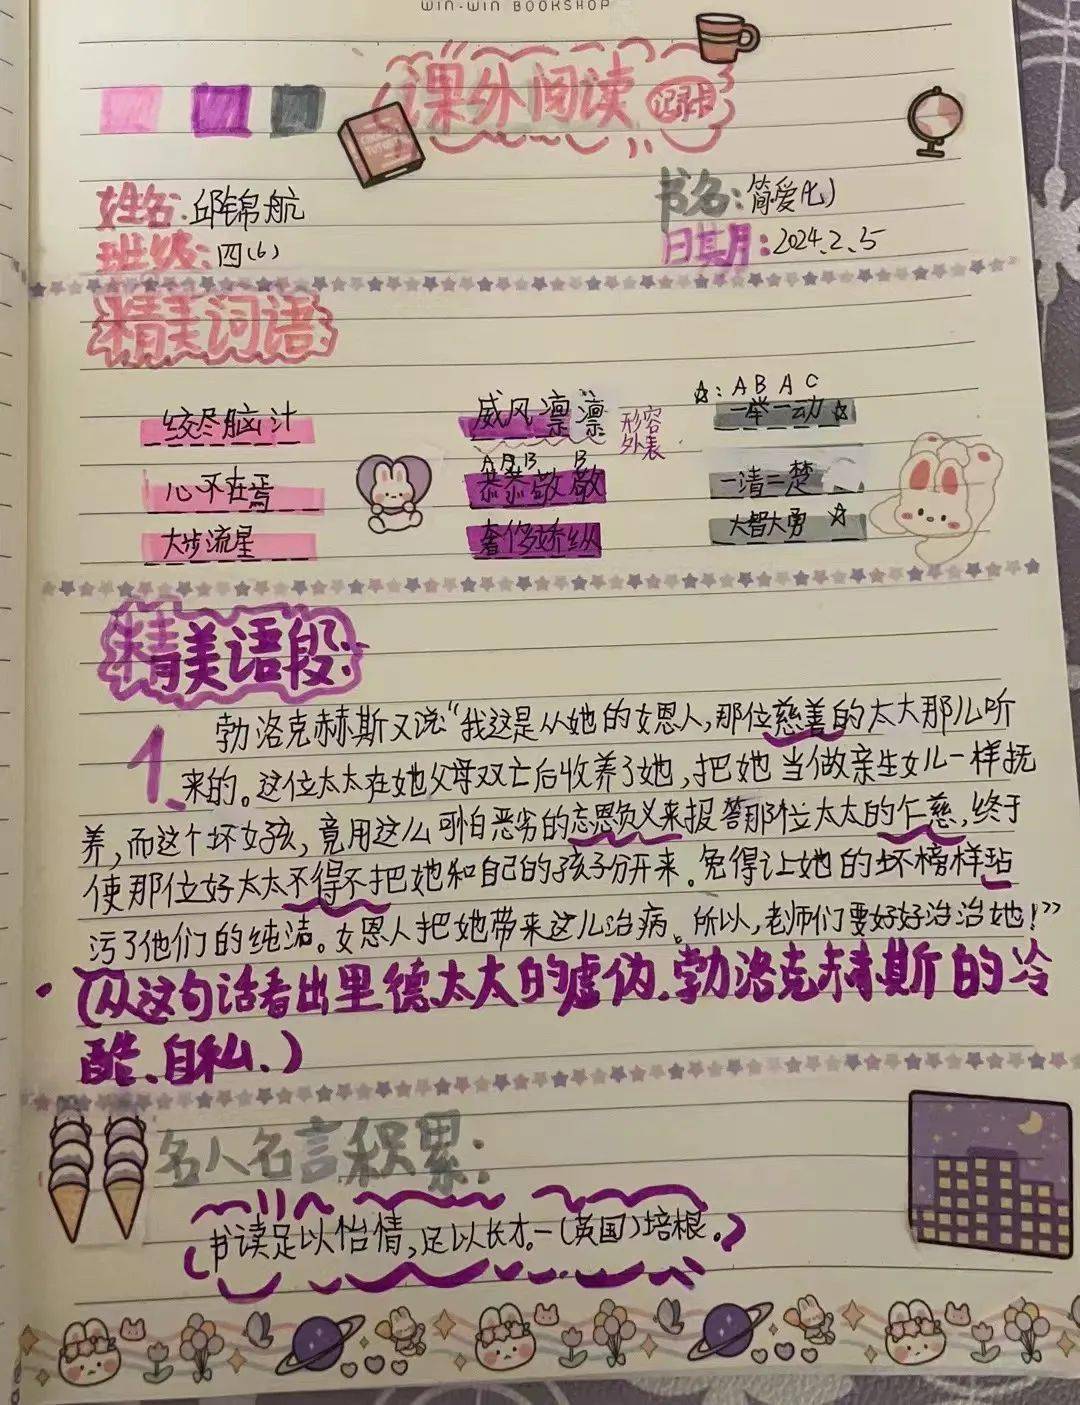 WIN·WIN BOOKSHOP
课外阅读 记录卡
姓名:邱锦航 书名:简爱(七)
班级:四(6) 日期:2024.2.5
精美词语
绞尽脑汁 威风凛凛 形容外表 ☆:ABAC 一举一动☆
心不在焉 AABB 恭恭敬敬 一清二楚
大步流星 奢侈娇纵 大智大勇☆
精美语段:
1、勃洛克赫斯又说:“我这是从她的女恩人,那位慈善的太太那儿听
来的。这位太太在她父母双亡后收养了她,把她当做亲生女儿一样抚
养,而这个坏女孩,竟用这么可怕恶劣的忘恩负义来报答那位太太的仁慈,终于
使那位好太太不得不把她和自己的孩子分开来。免得让她的坏榜样玷
污了他们的纯洁。女恩人把她带来这儿治病。所以,老师们要好好治治她!”
(从这句话看出里德太太的虚伪.勃洛克赫斯的冷
酷、自私、)
名人名言积累:
书读足以怡情,足以长才。—(英国)培根。